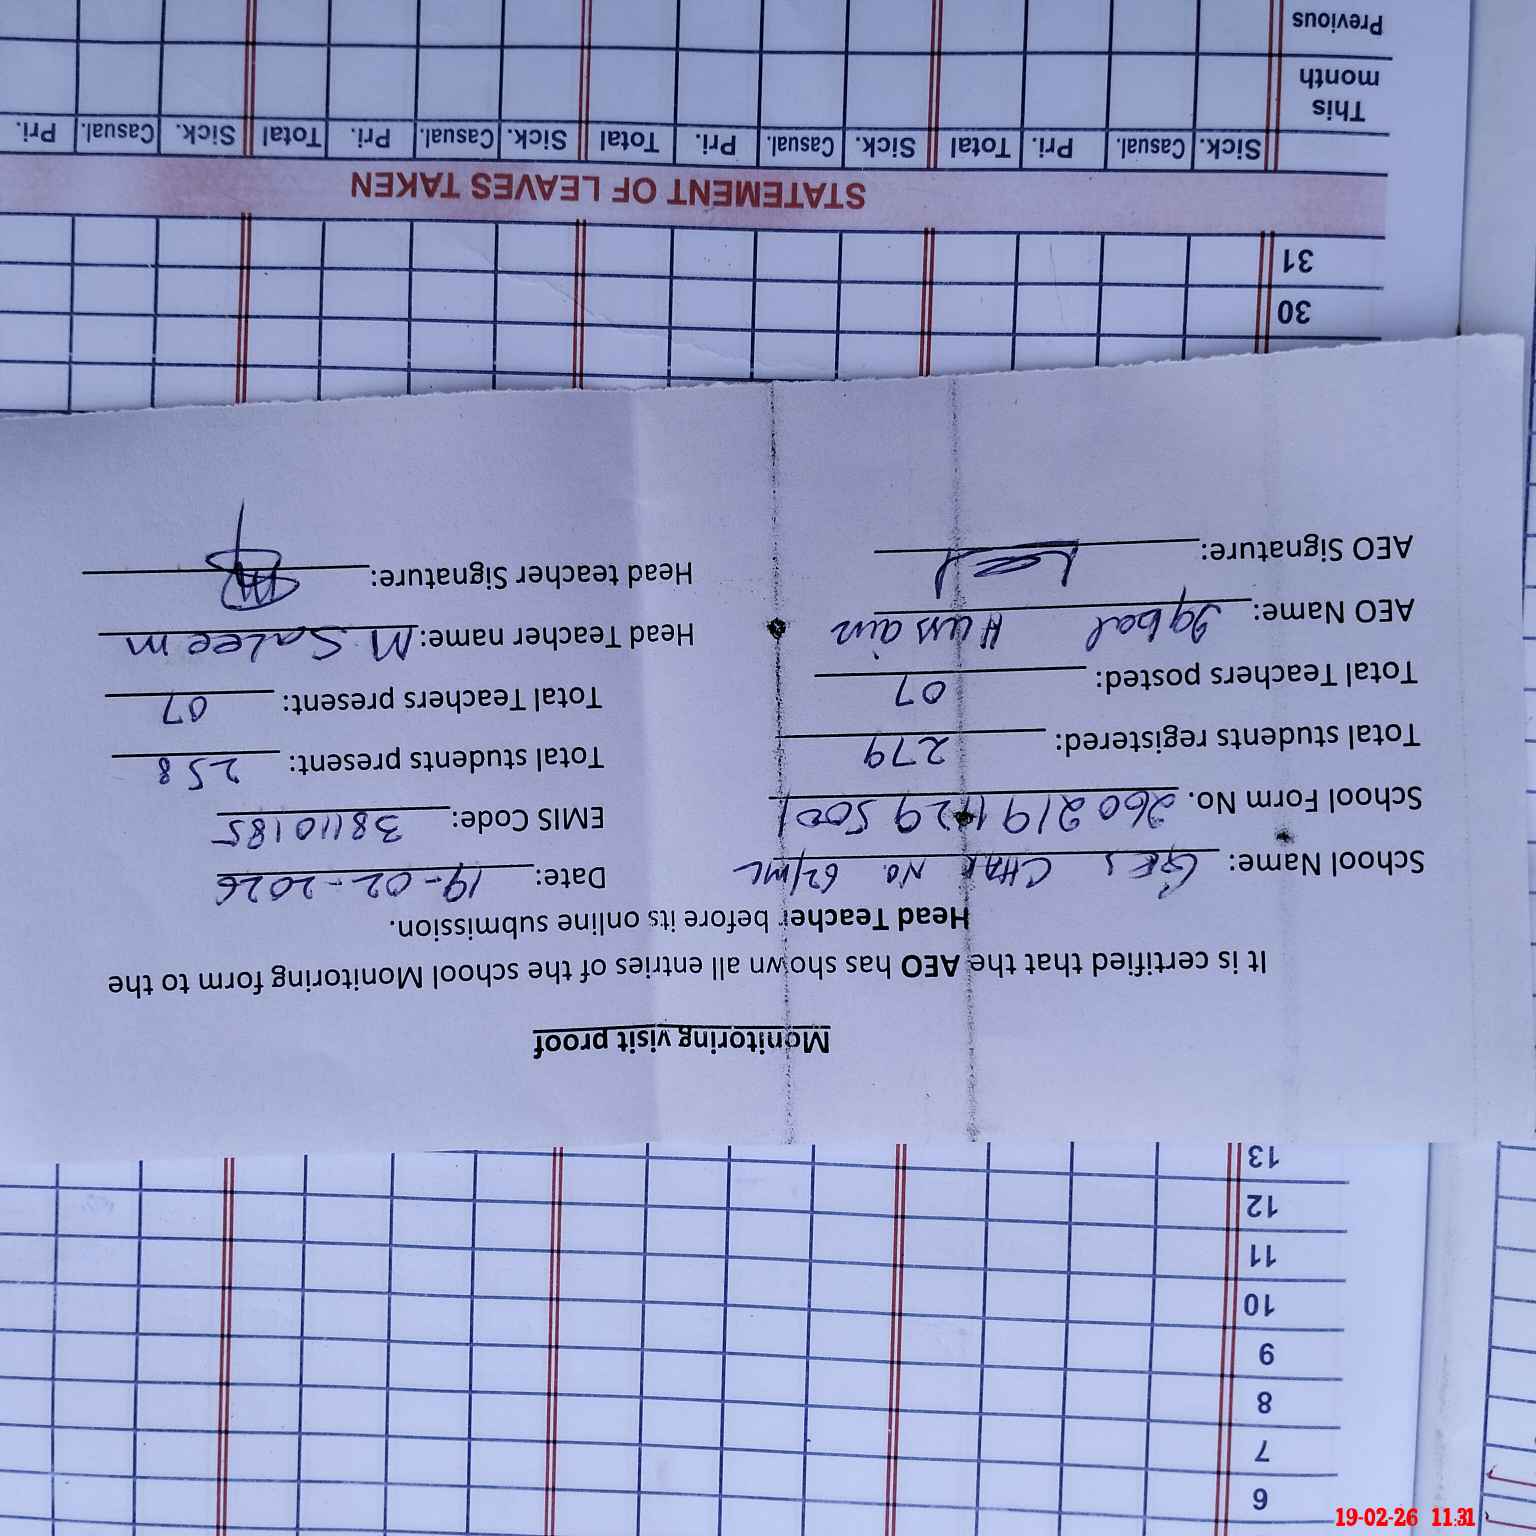 Monitoring visit proof
It is certified that the AEO has shown all entries of the school Monitoring form to the
Head Teacher before its online submission.
School Name: GES CHAK No. 62/ML Date: 19-02-2026
School Form No. EMIS Code: 38110185
Total students registered: 279 Total students present: 258
Total Teachers posted: 07 Total Teachers present: 07
AEO Name: Iqbal Hussain Head Teacher name: M Saleem
AEO Signature: Head teacher Signature:
6
7
8
9
10
11
12
13
30
31
STATEMENT OF LEAVES TAKEN
Sick. Casual. Pri. Total Sick. Casual. Pri. Total Sick. Casual. Pri. Total Sick. Casual. Pri.
This month
Previous
19-02-26 11:31